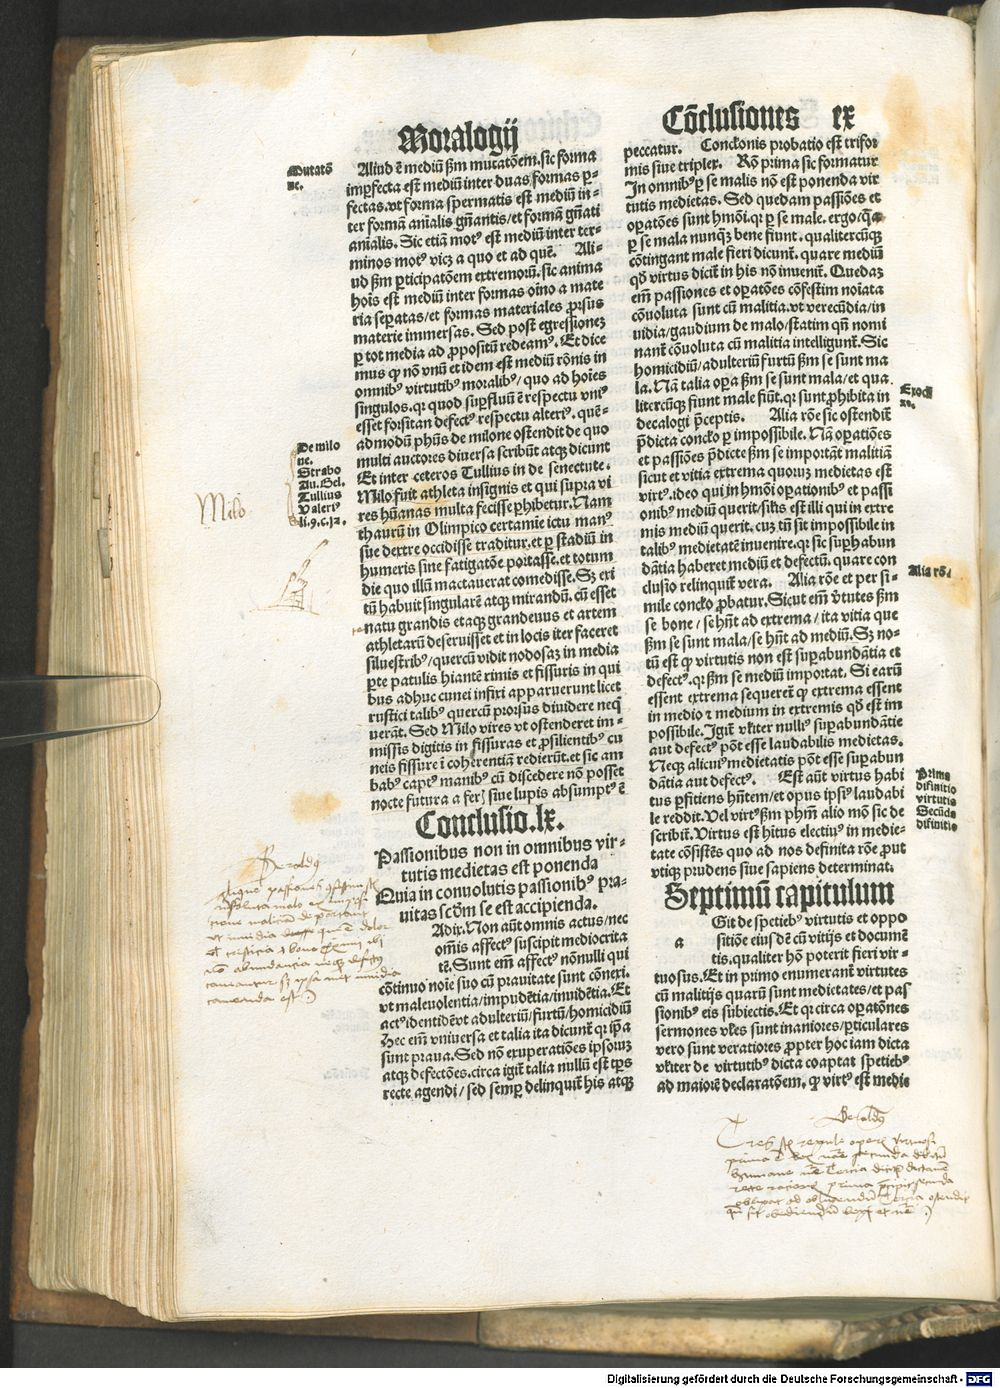 Moralogij
Aliud ē mediū ẜm mutatōem. sic forma
imꝑfecta est mediū inter duas formas ꝑ-
fectas. vt forma spermatis est mediū in-
ter formā aīalis gn̄antis/et formā gn̄ati
aīalis. Sic etiā motꝰ est mediū inter ter-
minos motꝰ vicꝫ a quo et ad quē. Ali-
ud ẜm ꝑticipatōem extremoꝝ. sic anima
hoīs est mediū inter formas oīno a mate
ria seꝑatas/et formas materiales ꝓrsus
materie immersas. Sed post egressionez
ꝑ tot media ad ꝓpositū redeamꝰ. Et dice
mus ꝙ nō vnū et idem est mediū rōnis in
omnibꝰ virtutibꝰ moralibꝰ/ quo ad hoīes
singulos. qꝛ quod suꝑfluū ē respectu vniꝰ
esset forsitan defectꝰ respectu alteriꝰ. quē-
admodū ph̄us de milone ostendit de quo
multi auctores diuersa scribūt atqꝫ dicunt
Et inter ceteros Tullius in de senectute.
Milo fuit athleta insignis et qui supra vi
res hūanas multa fecisse ꝑhibetur. Nam
thaurū in Olimpico certamīe ictu manꝰ
sue dextre occidisse traditur. et ꝑ stadiū in
humeris sine fatigatōe portasse. et totum
die quo illū mactauerat comedisse. Sꝫ exi
tū habuit singularē atqꝫ mirandū. cū esset
natu grandis etaqꝫ grandeuus et artem
athletarū deseruisset et in locis iter faceret
siluestribꝰ/ quercū vidit nodosaz in media
ꝑte patulis hiantē rimis et fissuris in qui
bus adhuc cunei infixi apparuerunt licet
rustici talibꝰ quercū prorsus diuidere neq̄
uerāt. Sed Milo vires vt ostenderet im-
missis digitis in fissuras et ꝓsilientibꝰ cu
neis fissure ī coherentiā redierūt. et sic am
babꝰ captꝰ manibꝰ cū discedere nō posset
nocte futura a ferꝭ siue lupis absumptꝰ ē
Conclusio. lx.
Passionibus non in omnibus vir-
tutis medietas est ponenda
Quia in conuolutis passionibꝰ pra-
uitas scd̄m se est accipienda.
Adir. Non aūt omnis actus/nec
om̄is affectꝰ suscipit mediocrita
tē. Sunt em̄ affectꝰ nōnulli qui
cōtinuo noīe suo cū prauitate sunt cōnexi.
vt maleuolentia/impudētia/inuidētia. Et
actꝰ identidē vt adulteriū/furtū/homicidiū
Hec em̄ vniuersa et talia ita dicunt̄ qꝛ ip̄a
sunt praua. Sed nō exuperatiōes ipsoruz
atqꝫ defectōes. circa igit̄ talia nullū est tp̄s
recte agendi/ sed semꝑ delinquit̄ his atqꝫ
Mutatō
ne.
De milo
ne.
Strabo
Au. Gel.
Tullius
Valeriꝰ
li. 9. c. 12.
Milo
Cōclusiones ex
peccatur. Conclonis probatio est trifor
mis siue triplex. Rō prima sic formatur
In omnibꝰ ꝑ se malis nō est ponenda vir
tutis medietas. Sed quedam passiōes et
oꝑatōes sunt hmōi. qꝛ ꝑ se male. ergo/ q̄a
ꝑ se mala nunqꝫ bene fiunt. qualitercūqꝫ
cōtingant male fieri dicunt̄. quare mediū
qd̄ virtus dicit̄ in his nō inuenit̄. Quedaz
em̄ passiones et oꝑatōes cōfestim noīata
cōuoluta sunt cū malitia. vt verecūdia/in
uidia/gaudium de malo/statim qn̄ nomi
nant̄ cōuoluta cū malitia intelligunt̄. Sic
homicidiū/adulteriū furtū ẜm se sunt ma
la. Nā talia oꝑa ẜm se sunt mala/et qua
litercūqꝫ fiunt male fiūt. qꝛ sunt ꝓhibita in
decalogi p̄ceptis. Alia rōe sic ostendit̄
p̄dicta conclo ꝑ impossibile. Nā oꝑatiōes
et passiōes p̄dicte ẜm se importāt malitiā
sicut et vitia extrema quoruz medietas est
virtꝰ. ideo qui in hmōi oꝑationibꝰ et passi
onibꝰ mediū querit/silis est illi qui in extre
mis mediū querit. cuz tn̄ sit impossibile in
talibꝰ medietatē inuenire. qꝛ sic suꝑhabun
dātia haberet mediū et defectū. quare con
clusio relinquit̄ vera. Alia rōe et per si-
mile conclo ꝓbatur. Sicut em̄ v̄tutes ẜm
se bone/ se hn̄t ad extrema/ ita vitia que
ẜm se sunt mala/ se hn̄t ad mediū. Sꝫ no-
tū est ꝙ virtutis non est suꝑabundātia et
defectꝰ. qꝛ ẜm se mediū importat. Si earū
essent extrema sequeret̄ ꝙ extrema essent
in medio ⁊ medium in extremis qd̄ est im
possibile. Igit̄ vl̄iter nulliꝰ suꝑabundātie
aut defectꝰ pōt esse laudabilis medietas.
Neqꝫ alicuiꝰ medietatis pōt esse suꝑabun
dātia aut defectꝰ. Est aūt virtus habi
tus ꝑfitiens hn̄tem/et opus ipsiꝰ laudabi
le reddit. Vel virtꝰ ẜm ph̄m alio mō sic de
scribit̄. Virtus est hītus electiuꝰ in medie-
tate cōsistēs quo ad nos definita rōe ꝓut
vtiqꝫ prudens siue sapiens determinat.
Septimū capitulum
a
Git de spetiebꝰ virtutis et oppo
sitiōe eius dē cū vitijs et documē
tis. qualiter hō poterit fieri vir-
tuosus. Et in primo enumerant̄ virtutes
cū malitijs quarū sunt medietates/et pas
sionibꝰ eis subiectis. Et qꝛ circa oꝑatōnes
sermones vl̄es sunt inaniores/ꝑticulares
vero sunt veratiores ꝓpter hoc iam dicta
vl̄iter de virtutibꝰ dicta coaptat spetiebꝰ
ad maiorē declaratōem. ꝙ virtꝰ est medie
Exodi
xx.
Alia rō.
Prima
difinitio
virtutis
Secūda
difinitio
Digitalisierung gefördert durch die Deutsche Forschungsgemeinschaft - DFG